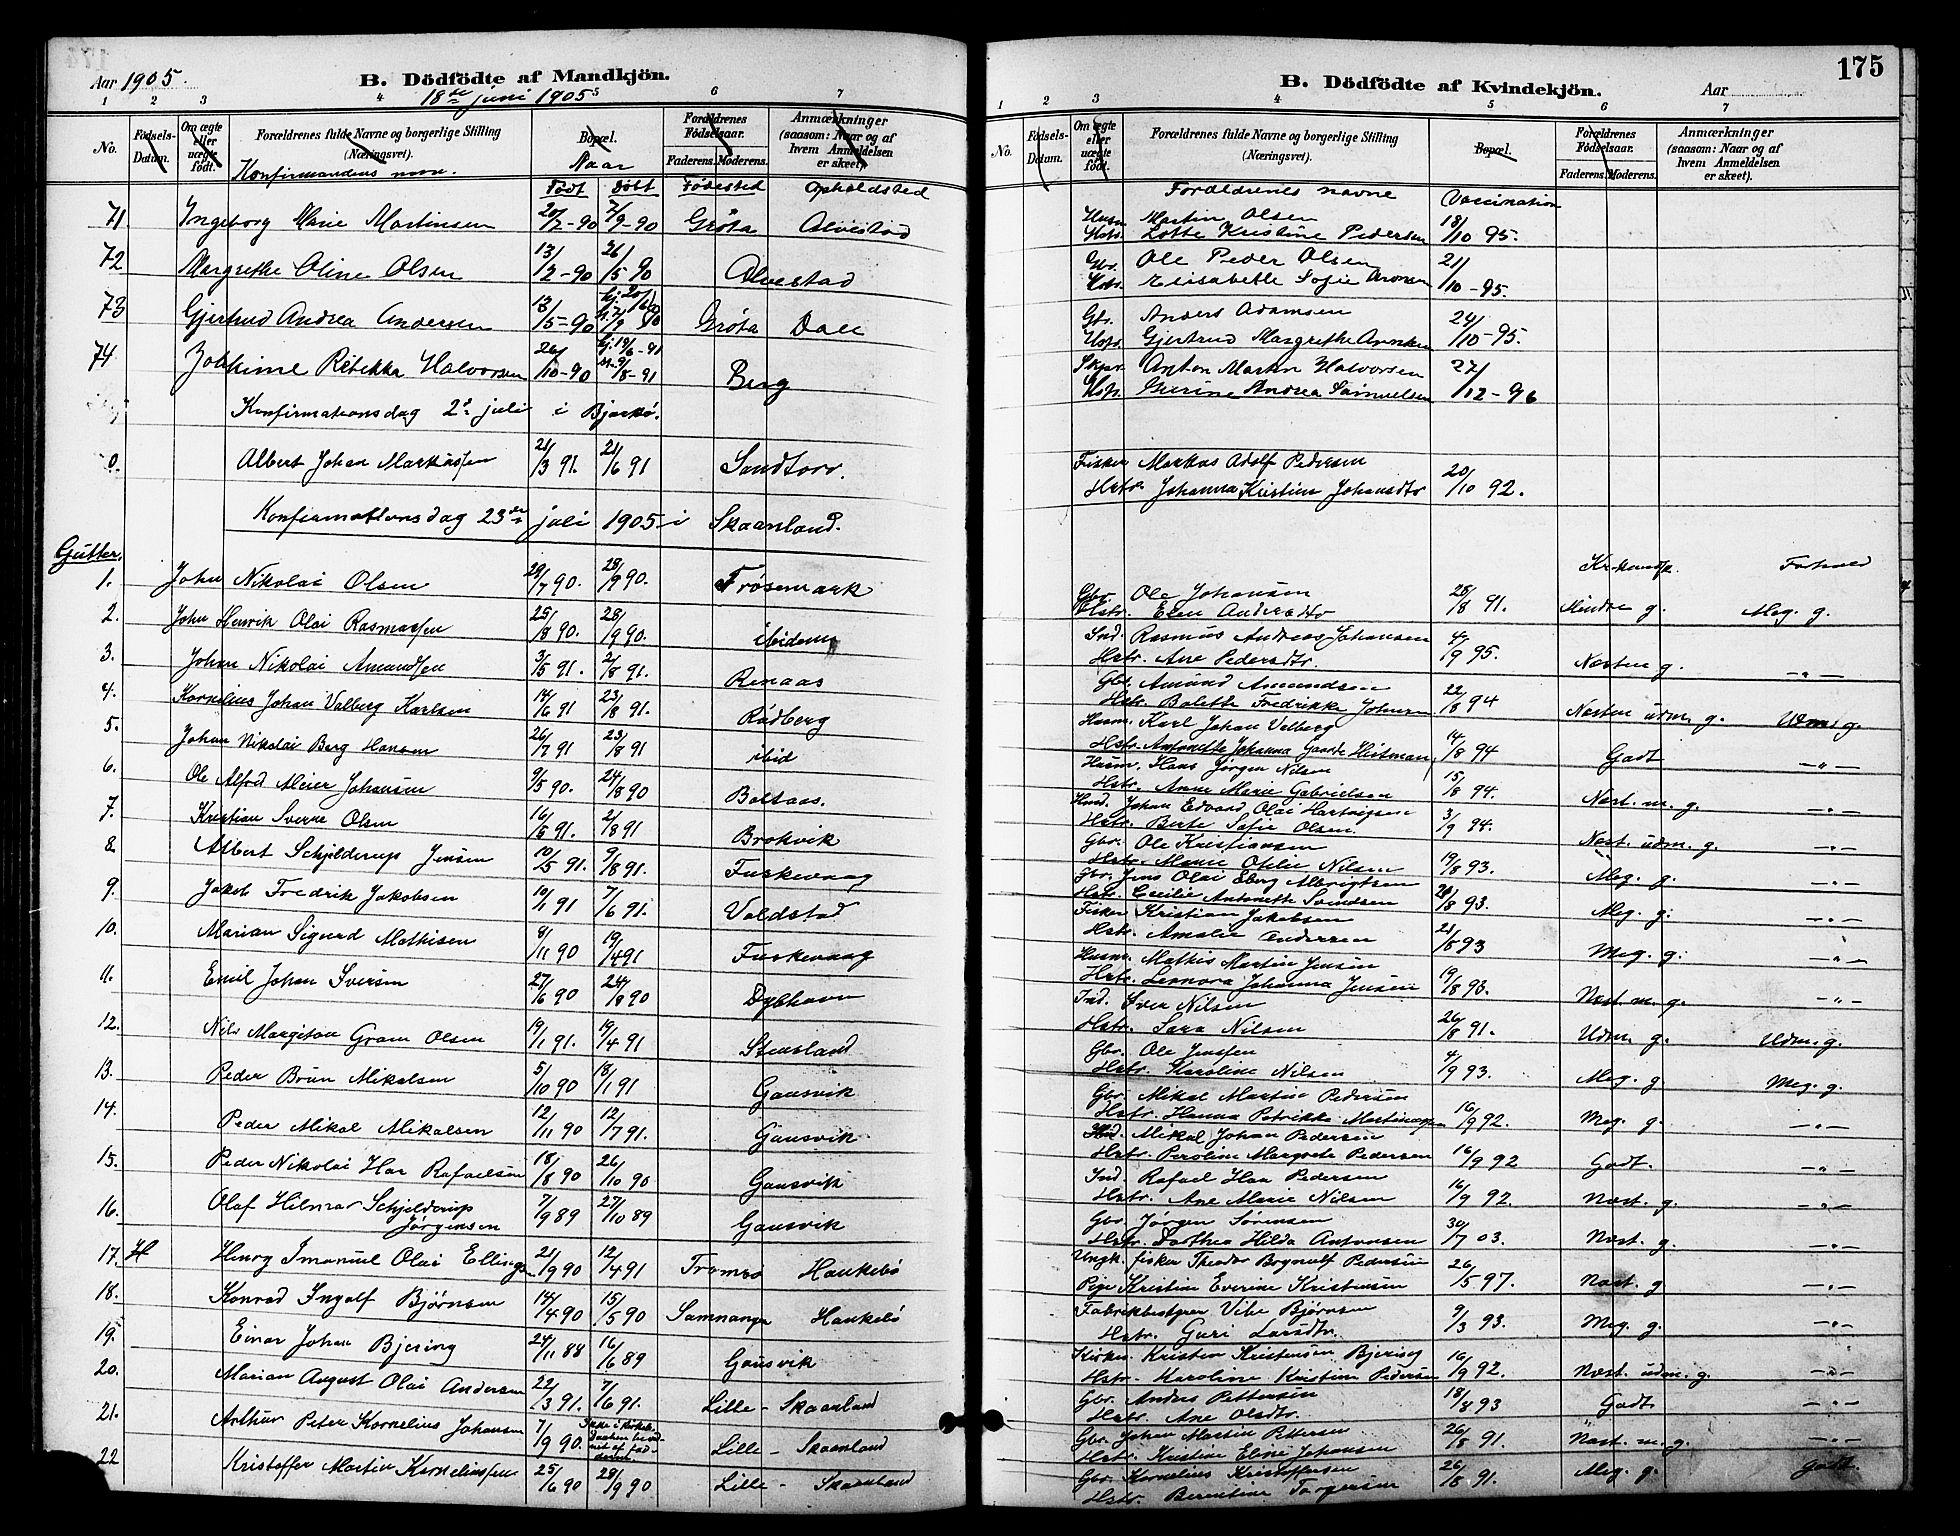 Aar 1905.
B. Dödfödte af Mandkjön.
18de juni 1905
1 2 3 4 5 6 7
No.
Födsels-Datum.
Om ægte eller uægte födt.
Forældrenes fulde Navne og borgerlige Stilling (Næringsvei).
Bopæl.
Forældrenes Födselsaar.
Faderens. Moderens.
Anmærkninger (saasom: Naar og af hvem Anmeldelsen er skeet).
Konfirmandens navn. Naar
Født Døbt Fødested Opholdsted
71 Ingeborg Marie Martinsen 20/2-90 7/9-90 Grøta Alvestad
72 Margrethe Oline Olsen 13/2-90 26/5 90 Alvestad
73 Gjertrud Andrea Andersen 13/5-90 Grøta Dale
74 Rebekka Halvorsen 26/10-90 Gj. 19/6-91 Berg
Konfirmationsdag 2den juli i Bjarkø.
0. Albert Johan Markussen 21/3 91. 21/6 91 Sandtorv.
Konfirmationsdag 23de juli 1905 i Skaanland.
Gutter.
1. John Nikolai Olsen 29/7 90. 28/9 90. Trøsemark
2. John Henrik Olai Rasmussen 25/8 90. 28/9 90. ibidem
3. Johan Nikolai Amundsen 3/5 91. 2/8 91. Renaas
4. Kornelius Johan Valberg Karlsen 14/6 91 23/8 91. Rødberg
5. Johan Nikolai Berg Hansen 26/7 91 23/8 91 ibid
6. Ole Alfred Meier Johansen 9/5 90. 24/8 90 Boltaas.
7. Kristian Sverre Olsen 16/5 91. 2/8 91 Brokvik
8. Albert Schjelderup Jensen 10/5 91. 9/8 91. Fuskevaag
9. Jakob Fredrik Jakobsen 10/1 91 7/6 91. Voldstad
10. Marian Sigurd Mathisen 8/11 90 19/4 91 Fuskevaag
11. Emil Johan Iversen 27/6 90 24/8 90 Dybhavn
12. Nils Margiton Gram Olsen 19/1 91. 19/4 91 Stensland
13. Peder Brun Mikalsen 5/10 90 18/1 91 Gausvik
14. Peder Mikal Mikalsen 12/11 90 12/7 91. Gausvik
15. Peder Nikolai Har Rafaelsen 18/8 90 26/10 90 Gausvik
16. Olaf Hilmar Schjelderup Jørgensen 7/9 89 27/10 89 Gausvik
17. H Henry Imanuel Olai Ellingsen 21/9 90 12/4 91 Tromsø Haukebø
18. Konrad Ingolf Bjørnsen 14/4 90 15/5 90 Samnanger Haukebø
19. Einar Johan Bjering 24/11 88 16/6 89 Gausvik
20. Marian August Olai Andersen 22/3 91. 7/6 91. Lille-Skaanland
21. Arthur Peter Kornelius Johansen 7/9 90. Lille-Skaanland
22 Kristoffer Martin Kornelinssen 25/6 90 28/9 90 Lille-Skaanland
175
B. Dödfödte af Kvindekjön.
Aar
1 2 3 4 5 6 7
No.
Födsels-Datum.
Om ægte eller uægte födt.
Forældrenes fulde Navne og borgerlige Stilling (Næringsvei).
Bopæl.
Forældrenes Födselsaar.
Faderens. Moderens.
Anmærkninger (saasom: Naar og af hvem Anmeldelsen er skeet).
Forældrenes navne Vaccination
Husm. Martin Olsen
Hstr. Lotte Kristine Pedersen 18/10 95.
Gbr. Ole Peder Olsen
Hstr. Elisabeth Sofie Aronsen 21/10-95.
Gbr. Anders Adamsen
Hstr. Gjertrud Margrethe 24/10-95.
Skpr. Anton Martin Halvorsen
Hstr. Andrea Samuelsen 27/12-96
Fisker Markus Adolf Pedersen
Hstr. Johanna Kristine Johansdtr 20/10 92.
Kr.kundsk. Forhold
Gbr. Ole Johansen
Hstr. Elen Andersdtr 28/8 91. Mindre g. Meg. g.
Ind. Rasmus Andreas Johansen
Hstr. Ane Pedersdtr. 4/9 95. Næsten g. -"-
Gbr. Amund Amundsen
Hstr. Bolette Fredrikke Johnsen 22/8 94 Næsten udm. g. Udm. g.
Husm. Karl Johan Valberg
Hstr. Antonette Johanna Gaarde Heitman 14/8 94 Godt -"-
Husm. Hans Jørgen Nilsen
Hstr. Anne Marie Gabrielsen 15/8 94. Næst. m. g. -"-
Johan Edvard Olai Hartvigsen
Hstr. Berte Sofie Olsen. 3/9 94. Næst. udm. g. -"-
Gbr. Ole Kristiansen
Hstr. Marie Otilie Nilsen 19/8 93. Meg. g. -"-
Gbr. Jens Olai Eberg Albrigtsen
Hstr. Cecilie Antonette Svendsen 28/8 93. Meg. g. -"-
Fisker Kristian Jakobsen
Hstr. Amalie Andersen 21/8 93 Meg. g. -"-
Husm. Mathis Martin Jensen
Hstr. Leonora Johanna Jensen 19/8 93. Næst. m. g. -"-
Ind. Iver Nilsen
Hstr. Sara Nilsen 26/8 91. Udm. g. Udm. g.
Gbr. Ole Jenssen
Hstr. Karoline Nilsen 4/9 93. Meg. g Meg. g.
Gbr. Mikal Martin Pedersen
Hstr. Hanna Petrikke 16/9 92. Meg. g. -"-
Ind. Mikal Johan Pedersen
Hstr. Peroline Margrete Pedersen 16/9 92 Godt. -"-
Ind. Rafael Har Pedersen
Hstr. Ane Marie Nilsen 16/9 92. Næst. g. -"-
Gbr. Jørgen Sørensen
Hstr. Dorthea Hilda Antonsen 30/7 03. Næst. g. -"-
Ungk. fisker Theodor Pedersen
Pige Kristine Everine Kristensen 26/5 97. Næst. g -"-
Fabrikbestyrer Bjørnsen
Hstr. Guri Larsdtr. 9/3 93. Meg. g. -"-
Kirkes. Kristen Kristensen Bjering
Hstr. Karoline Kristine Pedersen 16/9 92. Næst. udm. g. -"-
Gbr. Anders Pettersen
Hstr. Ane Olsdtr. 18/8 93 Godt -"-
Gbr. Johan Martin Pettersen
Hstr. Kristine Eline Johansen 26/8 91. Næst. m. g. -"-
Gbr. Kornelius Kristoffersen
Hstr. Berentine Torgersen 26/8 91. Meg. g. Godt.